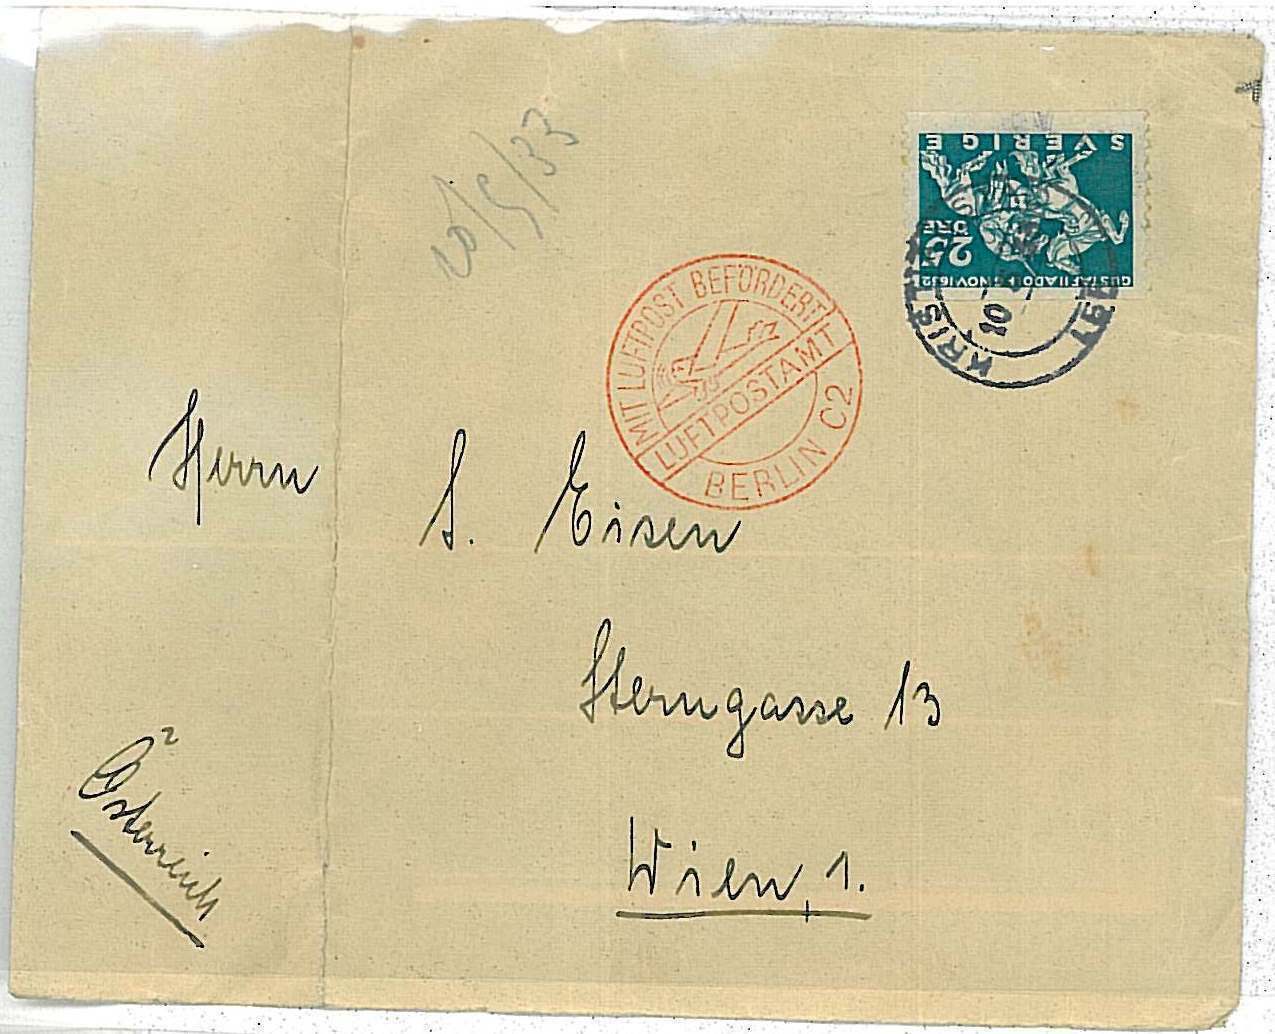 10/5/33
SVERIGE
25
ÖRE
GUSTAF II ADOLF 6 NOV 1632
KRIST
10
MIT LUFTPOST BEFÖRDERT
LUFTPOSTAMT
BERLIN C2
Herrn
S. Eisen
Sterngasse 13
Wien, 1.
Österreich